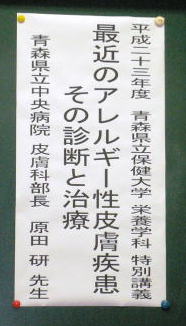 平成二十三年度　青森県立保健大学　栄養学科　特別講義
最近のアレルギー性皮膚疾患
その診断と治療
青森県立中央病院　皮膚科部長　原田　研　先生